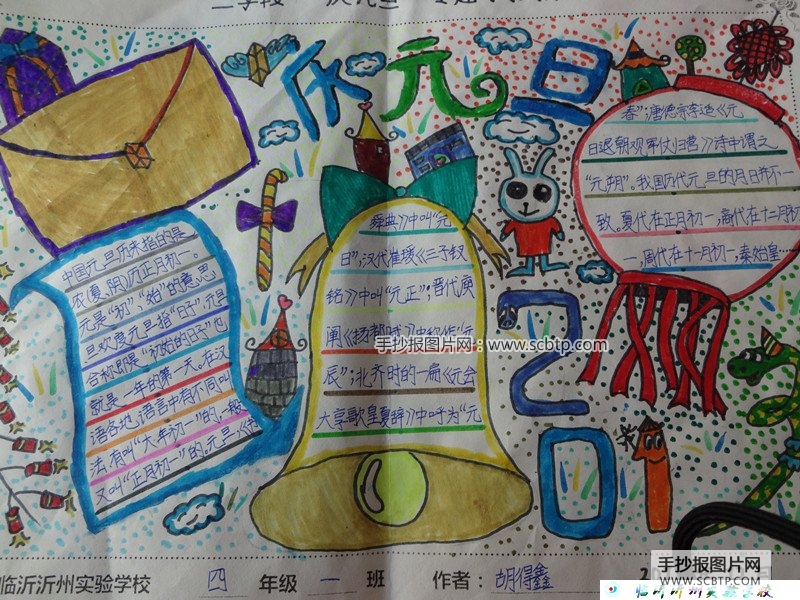 庆元旦
中国元旦历来指的是
农(夏、阴)历正月初一。
元是"初"、"始"的意思
旦欢度元旦指"日子",元旦
合称即是"初始的日子"也
就是一年的第一天。在汉
语各地,语言中有不同叫
法,有叫"大年初一"的,一般
又叫"正月初一"的。元旦,《书
舜典》中叫"元
日",汉代崔瑗《三子钗
铭》中叫"元正";晋代庾
阐《扬都赋》中称作"元
辰";北齐时的一篇《元会
大享歌皇夏辞》中呼为"元
春";唐德宗李适《元
日退朝观军仗归营》诗中谓之
"元朔"。我国历代元旦的月日并不一
致。夏代在正月初一,商代在十二月初
一,周代在十一月初一,秦始皇
201
手抄报图片网:www.scbtp.com
临沂沂州实验学校 四 年级 一 班 作者:胡得鑫 2
手抄报图片网
WWW.SCBTP.COM
临沂沂州实验学校